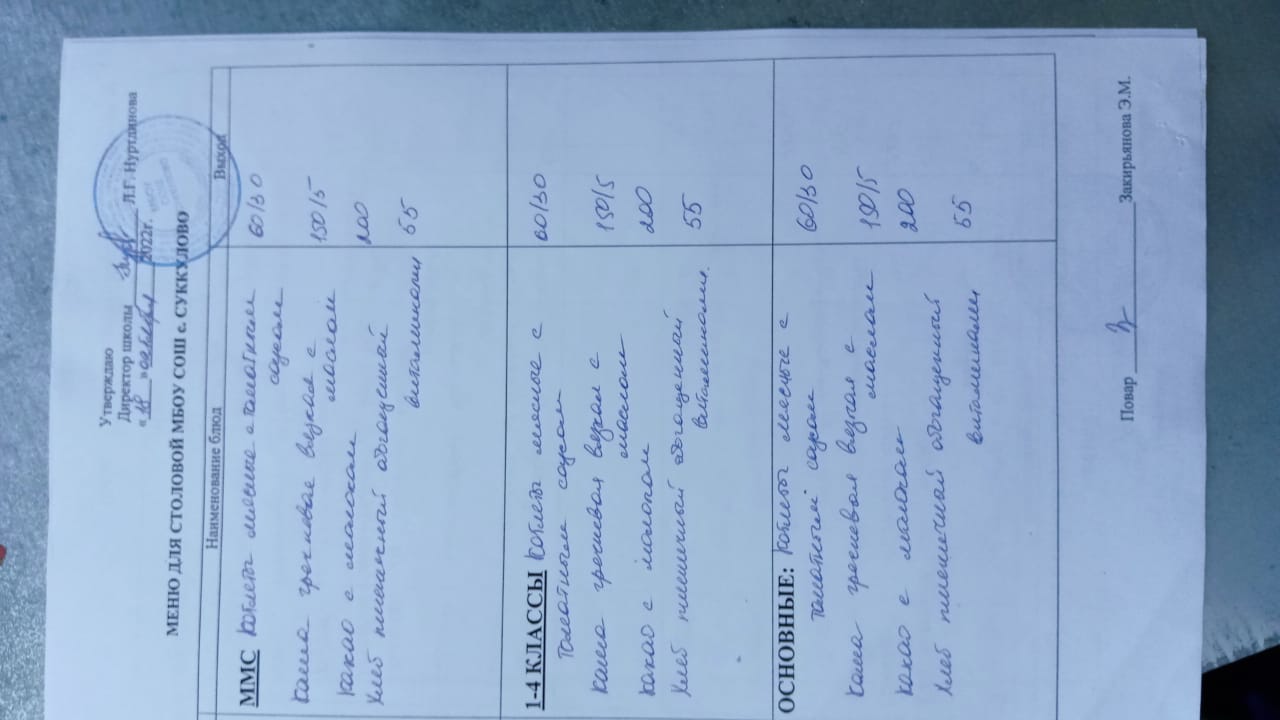 Утверждаю
Директор школы Л.Г. Нуртдинова
« 19 » октября 2022г.
МЕНЮ ДЛЯ СТОЛОВОЙ МБОУ СОШ с. СУККУЛОВО
Наименование блюд Выход
ММС Котлеты мясные с томатным 60/30
соусом
Каша гречневая вязкая с 150/5
маслом
Какао с молоком 200
Хлеб пшеничный обогащенный 55
витаминами
1-4 КЛАССЫ Котлеты мясные с 60/30
томатным соусом
Каша гречневая вязкая с 150/5
маслом
Какао с молоком 200
Хлеб пшеничный обогащенный 55
витаминами.
ОСНОВНЫЕ: Котлеты мясные с 60/30
томатным соусом
Каша гречневая вязкая с 150/5
маслом
Какао с молоком 200
Хлеб пшеничный обогащенный 55
витаминами
Повар Закирьянова Э.М.